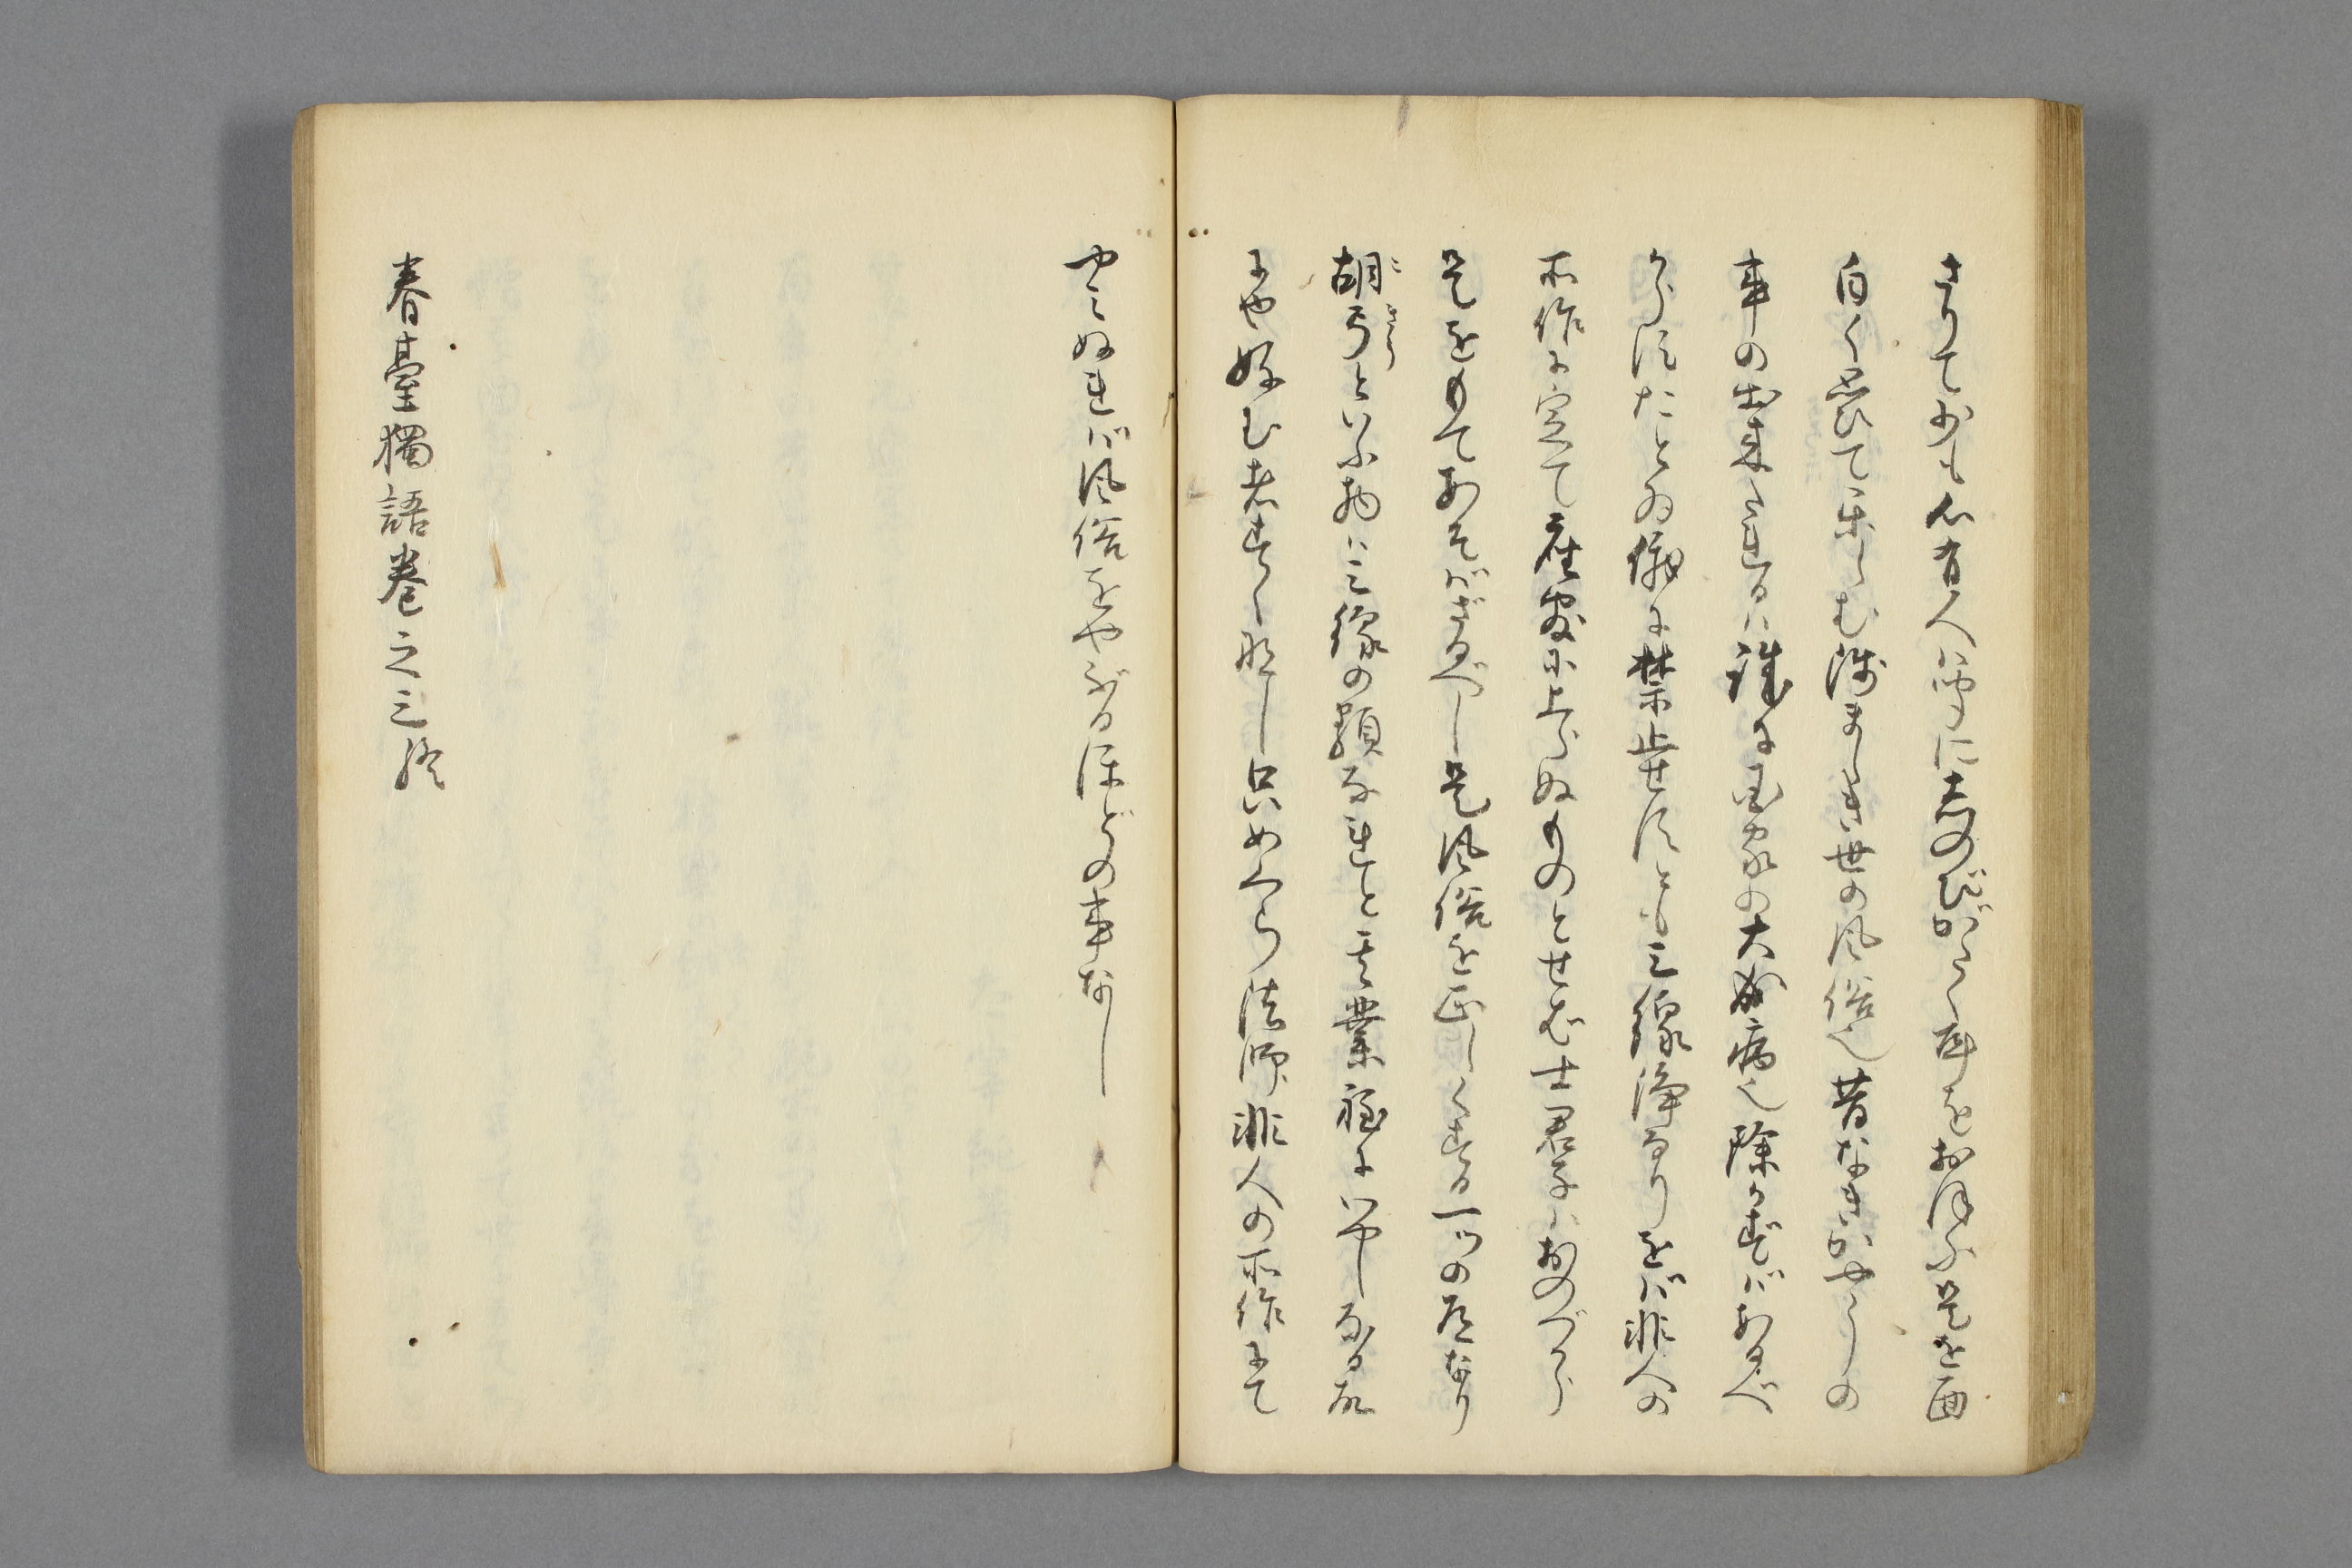 きりて少も心有人は寔に志のびがたく耳をおほふ是を面
白く思ひて楽しむ浅ましき世の風俗也昔なきあやしの
事の出来たるは誠に国家の大なる病也除かずばあるべ
からずたとゐ俄に禁止せずとも三線浄るりをば非人の
所作に定て座敷に上らぬものとせば士君子はおのづから
是をもてあそばざるべし是風俗を正しくする一つの道なり
胡弓といふ物は三線の類なれと其業殊にいやしなる故
にや好む者すくなし只めくら法師非人の所作にて
やみぬれば風俗をやぶるほどの事なし
春臺獨語巻之三終